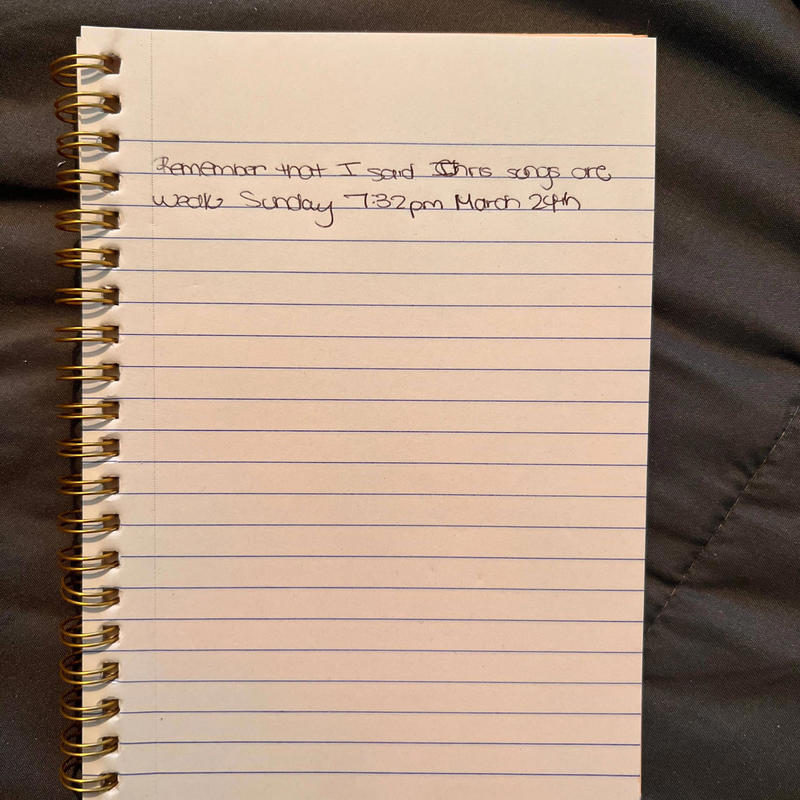 Remember that I said Chris songs are
weak Sunday 7:32pm March 24th